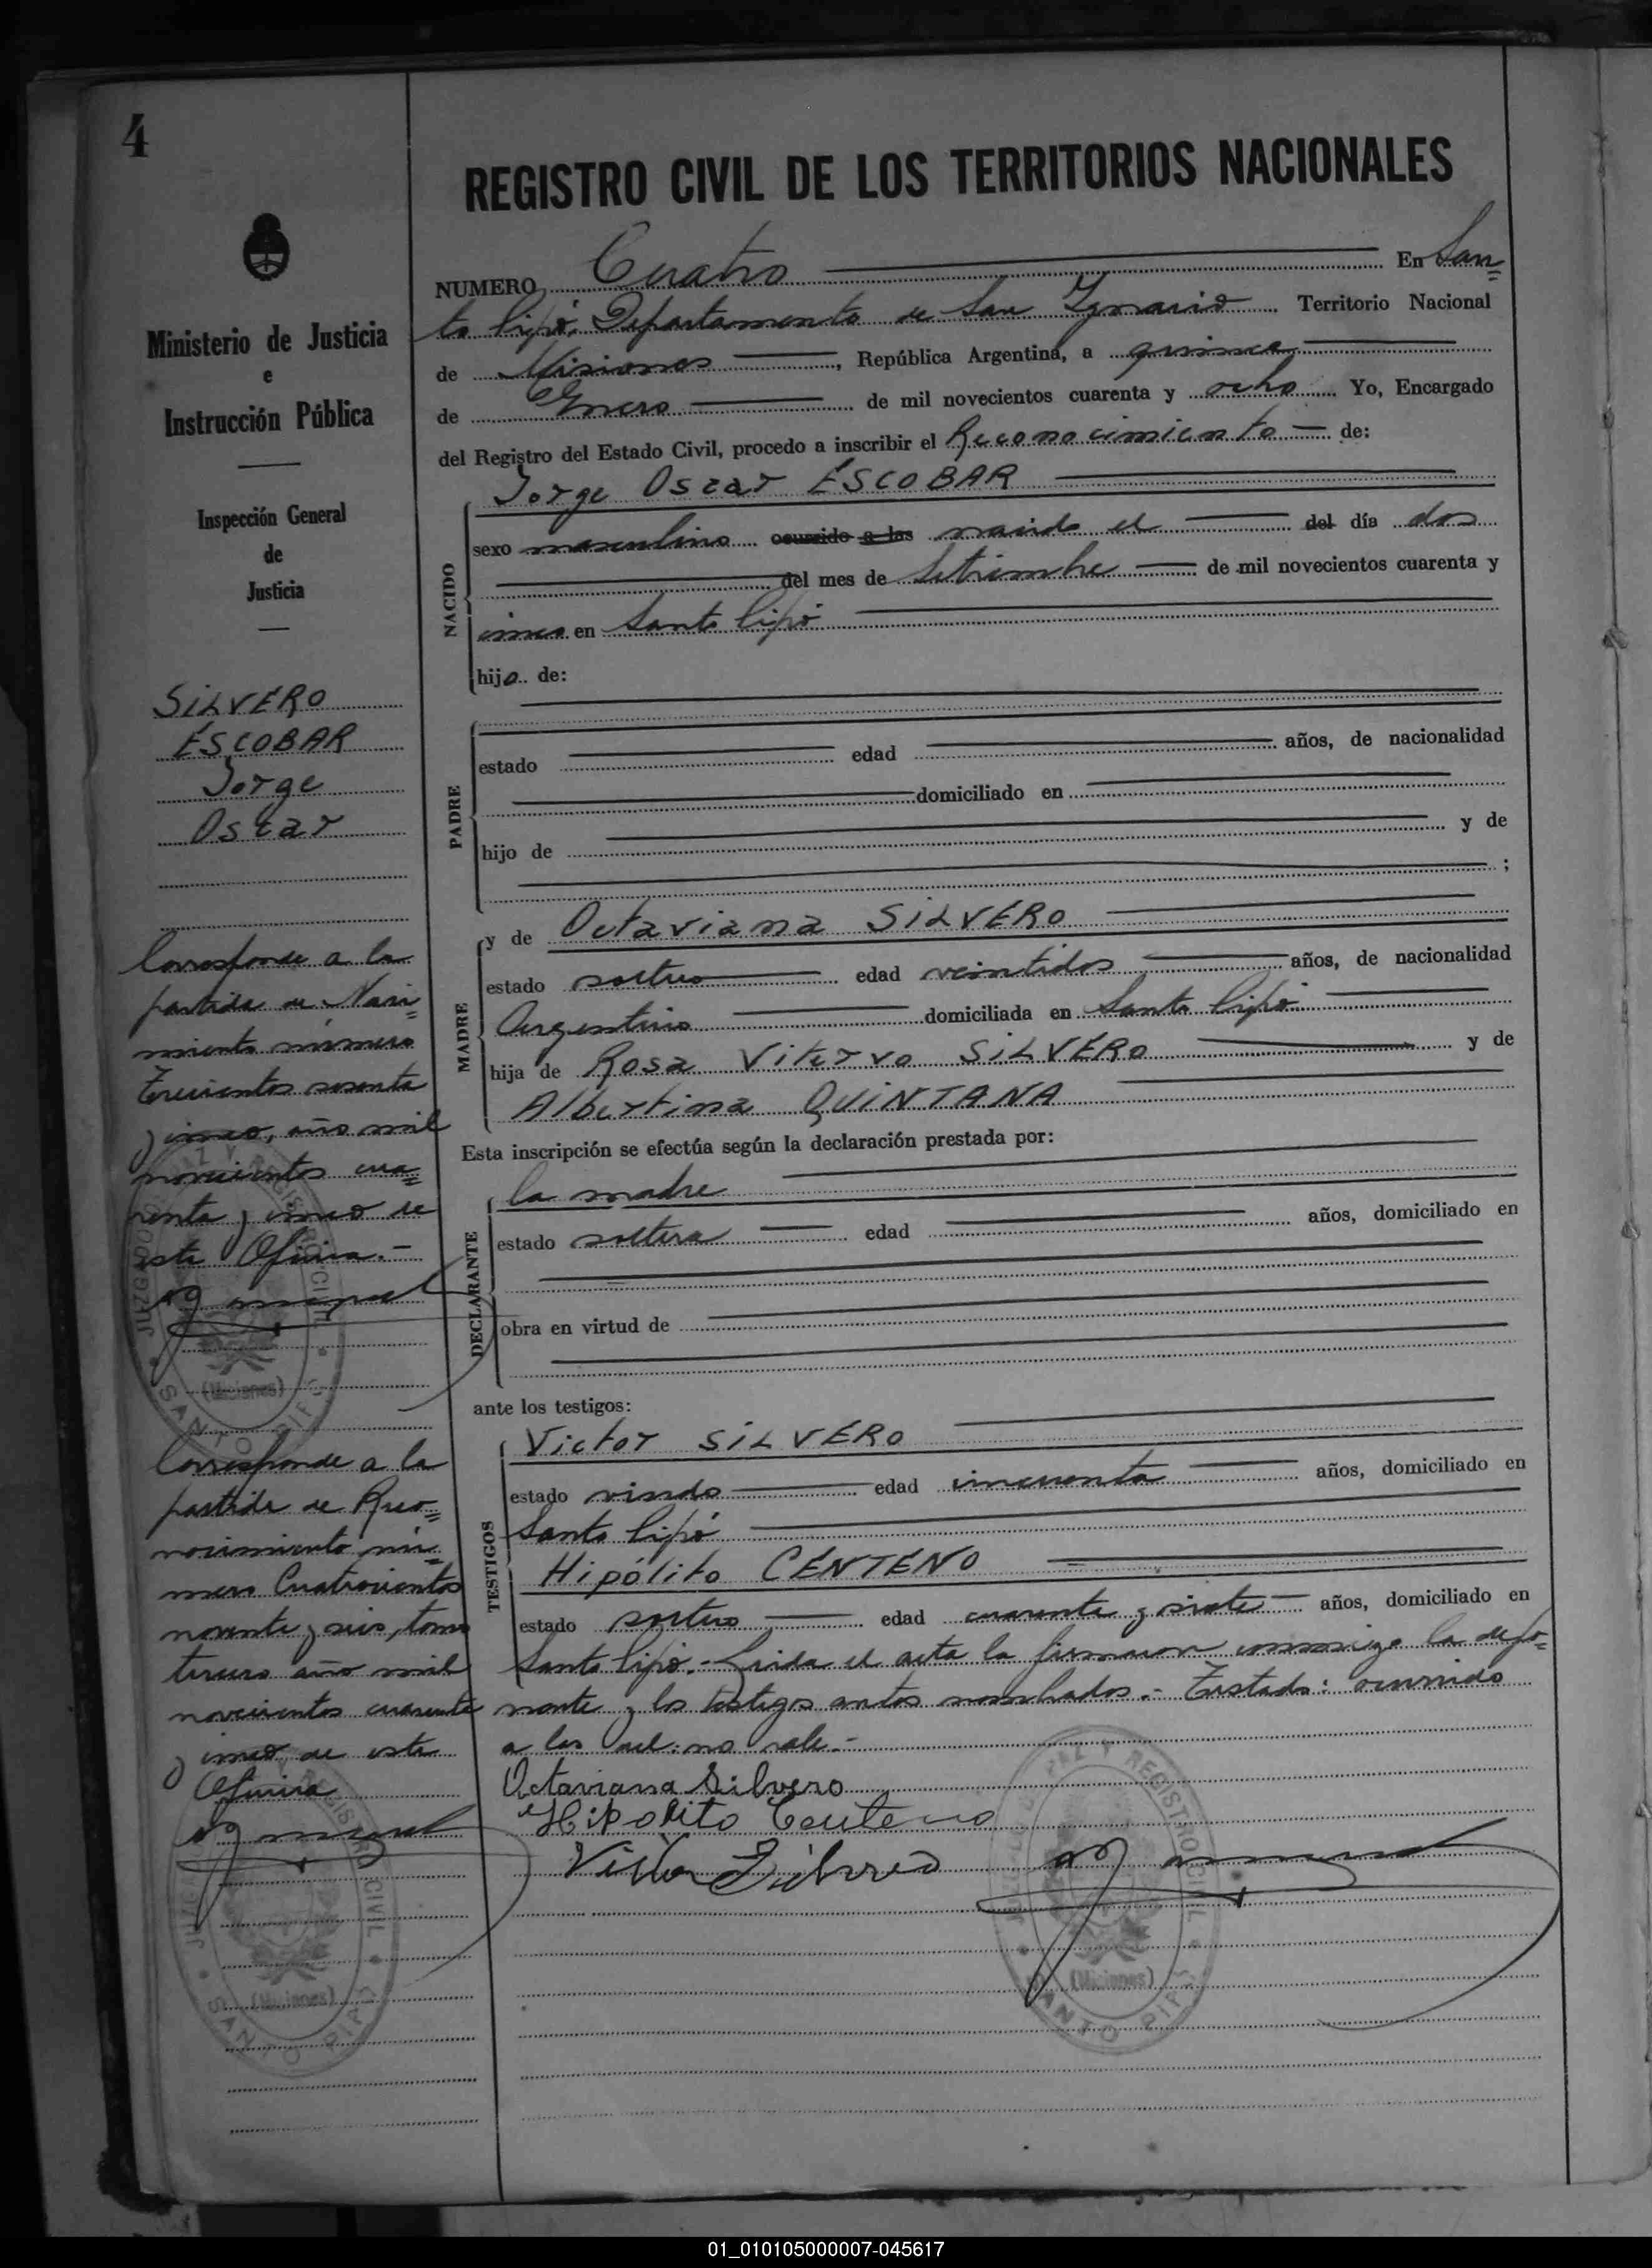 4
REGISTRO CIVIL DE LOS TERRITORIOS NACIONALES
Ministerio de Justicia
e
Instrucción Pública
Inspección General
de
Justicia
SILVERO
ESCOBAR
Jorge
Oscar
Corresponde a la
partida de Naci=
miento número
Trecientos sesenta
y cinco, año mil
novecientos cua=
renta y cinco de
esta Oficina.-
Corresponde a la
partida de Reco=
nocimiento nú=
mero Cuatrocientos
noventa y seis, tomo
tercero año mil
novecientos cuarenta
y cinco, de esta
Oficina
NUMERO Cuatro En San=
to Pipó, Departamento de San Ygnacio Territorio Nacional
de Misiones, República Argentina, a quince
de Enero de mil novecientos cuarenta y ocho Yo, Encargado
del Registro del Estado Civil, procedo a inscribir el Reconocimiento de:
NACIDO
Jorge Oscar ESCOBAR
sexo masculino ocurrido a las nacido el del día dos
del mes de Setiembre de mil novecientos cuarenta y
cinco en Santo Pipó
hijo de:
PADRE
estado edad años, de nacionalidad
domiciliado en
hijo de y de
;
MADRE
y de Octaviana SILVERO
estado soltera edad veintidos años, de nacionalidad
Argentina domiciliada en Santo Pipó
hija de Rosa Vitervo SILVERO y de
Albertina QUINTANA
Esta inscripción se efectúa según la declaración prestada por:
DECLARANTE
la madre
estado soltera edad años, domiciliado en
obra en virtud de
ante los testigos:
TESTIGOS
Victor SILVERO
estado viudo edad cincuenta años, domiciliado en
Santo Pipó
Hipólito CENTENO
estado soltero edad cuarenta y siete años, domiciliado en
Santo Pipó.- Leida el acta la firmaron conmigo la depo=
nente y los testigos antes nombrados.- Testado: ocurrido
a las del: no vale.-
Octaviana Silvero
Hipolito Centeno
Victor Silvero
JUZGADO DE PAZ Y REGISTRO CIVIL
(Misiones)
SANTO PIPÓ
JUZGADO DE PAZ Y REGISTRO CIVIL
(Misiones)
SANTO PIPÓ
JUZGADO DE PAZ Y REGISTRO CIVIL
(Misiones)
SANTO PIPÓ
01_010105000007-045617